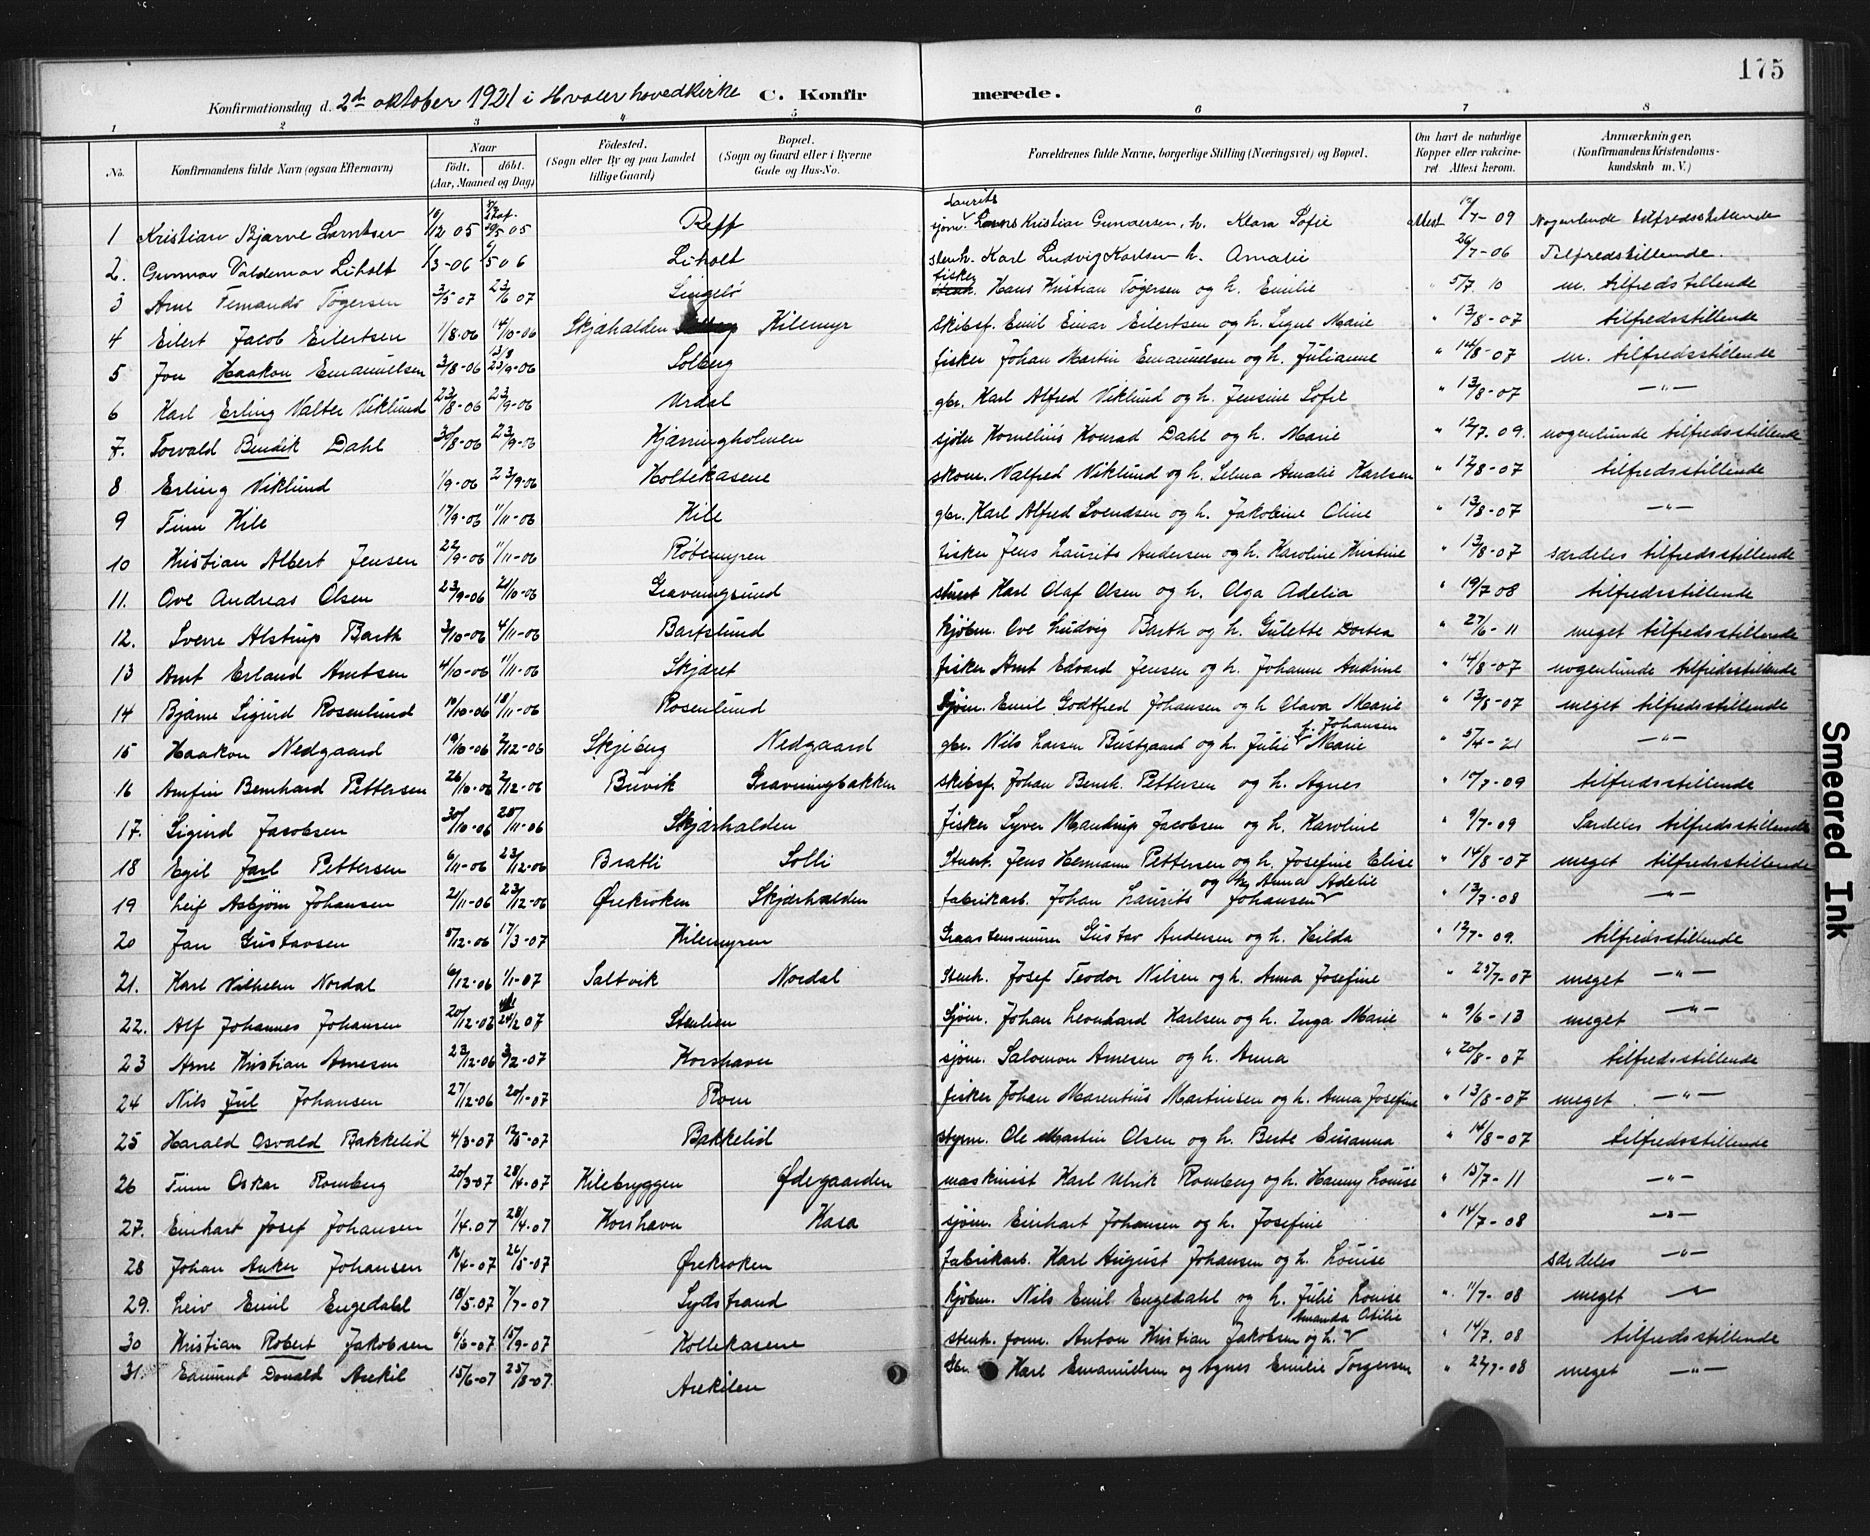 175
Konfirmationsdag d. 2den oktober 1921 i Hvaler hovedkirke C. Konfirmerede.
1 2 3 4 5 6 7 8
No. Konfirmandens fulde Navn (ogsaa Efternavn) Naar født. døbt. (Aar, Maaned og Dag) Fødested. (Sogn eller By og paa Landet tillige Gaard) Bopæl. (Sogn og Gaard eller i Byerne Gade og Hus-No. Forældrenes fulde Navne, borgerlige Stilling (Næringsvei) og Bopæl. Om havt de naturlige Kopper eller vaccineret. Attest herom. Anmærkninger. (Konfirmandens Kristendomskundskab m. V.)
1 Kristian Bjarne Larntsen 12 05 Reff sjøm. Laurits Kristian Gundersen, h. Klara Sofie Attest 7-09 Nogenlunde tilfredsstillende
2. Gunnar Valdemar Liholt 1/3-06 Liholt stenh. Karl Ludvig Karlsen h. Amalie 26/7-06 Tilfredstillende.
3 Arne Fernando Tøgersen 3/5 07 23/6 07 Lingelö fisker Hans Kristian Tögersen og h. Emilie " 5/7 10 m. tilfredstillende
4 Eilert Jacob Eilertsen 1/8-06 14/10-06 Skjæhalden Kilemyr Skibsf. Emil Einar Eilertsen og h. Signe Marie " 13/8-07 tilfredsstillende
5 Jon Haakon Emanuelsen 3/8-06 23/9-06 Solberg fisker Johan Martin Emanuelsen og h. Julianne " 14/8-07 m. tilfredsstillende
6 Karl Erling Valter Viklund 23/8-06 23/9-06 Urdal gbr. Karl Alfred Viklund og h. Jensine Sofie " 13/8-07 — " —
7. Torvald Bendik Dahl 30/8-06 23/9-06 Kjærringholmen sjøm Kornelius Konrad Dahl og h. Marie " 12/7-09. nogenlunde tilfredsstillende
8 Erling Viklund 1/9-06 23/9-06 Holtekasene skom. Valfred Viklund og h. Selma Amalie Karlsen " 12/8-07 tilfredsstillende
9 Finn Kile 17/9-06 11/11-06 Kile gbr. Karl Alfred Svendsen og h. Jakobine Oline " 13/8-07 — " —
10 Kristian Albert Jensen 22/9-06 11/11-06 Røtemyren fisker Jens Laurits Andersen og h. Karoline Kristine " 13/8-07 særdeles tilfredsstillende
11. Ove Andreas Olsen 23/9-06 21/10-06 Gravningsund Karl Olaf Olsen og h. Olga Adelia " 19/7 08 tilfredsstillende
12. Sverre Alstrup Barth 3/10-06 4/11-06 Bartslund kjøbm. Ove Ludvig Barth og h. Gulette Dortea " 27/6-11 meget tilfredsstillende
13 Arnt Erland Arntsen 4/10-06 11/11-06 Skjæret fisker Arnt Edvard Jensen og h. Johanne Andrine " 14/8-07 nogenlunde tilfredsstillende
14 Bjarne Sigurd Rosenlund 10/10-06 18/11-06 Rosenlund Sjøm. Emil Godtfred Johansen og h Olava Marie " 13/8-07 meget tilfredsstillende
15 Haakon Nedgaard 19/10-06 2/12-06 Skjeberg Nedgaard gbr. Nils Larsen Bustgaard og h. Julie Marie f. Johansen " 5/4-21 — " —
16 Arnfin Bernhard Pettersen 26/10-06 2/12-06 Buvik Gravningbakken skibsf. Johan Bernh. Pettersen og h. Agnes " 15/7-09 tilfredsstillende
17. Sigurd Jacobsen 30/10-06 25/11-06 Skjærhalden fisker Syver Mandrup Jacobsen og h. Karoline " 9/7-09 Særdeles tilfredsstillende
18 Egil Jarl Pettersen 6/11-06 23/12-06 Bratli Solli Stuert. Jens Hermann Pettersen og h. Josefine Elise " 14/8-07 meget tilfredsstillende
19 Leif Asbjørn Johansen 21/11-06 23/12-06 Ørekroken Skjærhalden fabrikarb. Johan Laurits Johansen og h. Anna Adelie " 13/7-08 — " —
20 Jan Gustavsen 5/12-06 17/3-07 Kilemyren Graastensmurer Gustav Andersen og h. Hilda " 12/7-09. tilfredsstillende
21. Karl Vilhelm Nordal 6/12-06 1/1-07 Saltvik Nordal Stenh. Josef Teodor Nilsen og h. Anna Josefine " 25/7-07 meget — " —
22. Alf Johannes Johansen 20/12-06 24/2 07 Stenlien Sjøm. Johan Leonhard Karlsen og h. Inga Marie " 9/6-13 meget — " —
23 Arne Kristian Arnesen 23/12-06 3/2-07 Korshavn sjøm. Salomon Arnesen og h. Anna " 20/8-07 tilfredsstillende
24 Nils Jul Johansen 27/12-06 20/1-07 Rom fisker Johan Marentius Martinsen og h. Anna Josefine " 13/8-07 meget — " —
25 Harald Osvald Bakkelid 4/3-07 12/5-07 Bakkelid styrm. Ole Martin Olsen og h. Berte Susanna " 14/8-07 tilfredsstillende
26 Finn Oskar Romberg 20/3-07 28/4-07 Kilebryggen Ødegaarden maskinist Karl Ulrik Romberg og h. Hanny Louise " 15/7-11 — " —
27. Einhart Josef Johansen 1/4-07 28/4-07 Korshavn Kasa sjøm. Einhart Johansen og h. Josefine " 14/7-08 — " —
28 Johan Anker Johansen 16/4-07 26/5-07 Ørekroken Fabrikarb. Karl August Johansen og h. Louise særdeles — " —
29. Leiv Emil Engedahl 18/5-07 7/7-07 Sydstrand kjøbm. Nils Emil Engedahl og h. Julie Louise " 11/7-08 meget — " —
30 Kristian Robert Jakobsen 6/6-07 15/9-07 Holtekasene stenh. form. Anton Kristian Jakobsen og h. Amanda Otilie " 14/7-08 tilfredsstillende
31. Edmund Donald Arekil 15/6-07 25/8-07 Arekilen Gbr. Karl Emanuelsen og Agnes Emilie Torgersen " 22/7-08 meget — " —
Smeared Ink